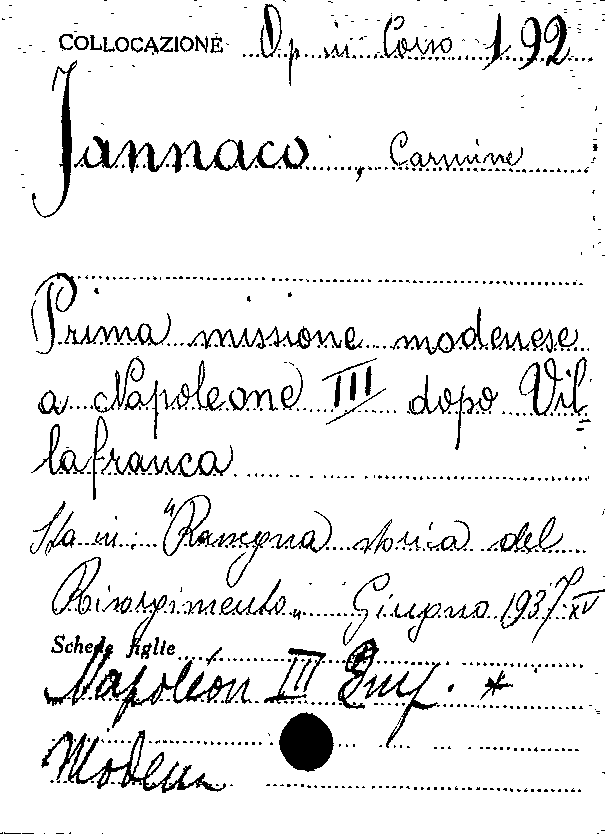 COLLOCAZIONE Op in Corso 192
Jannaco, Carmine
Prima missione modenese
a Napoleone III dopo Vil=
lafranca
Sta in: "Rassegna storica del
Risorgimento„ Giugno 1937. XV
Schede figlie
Napoléon III Emp. *
Modena